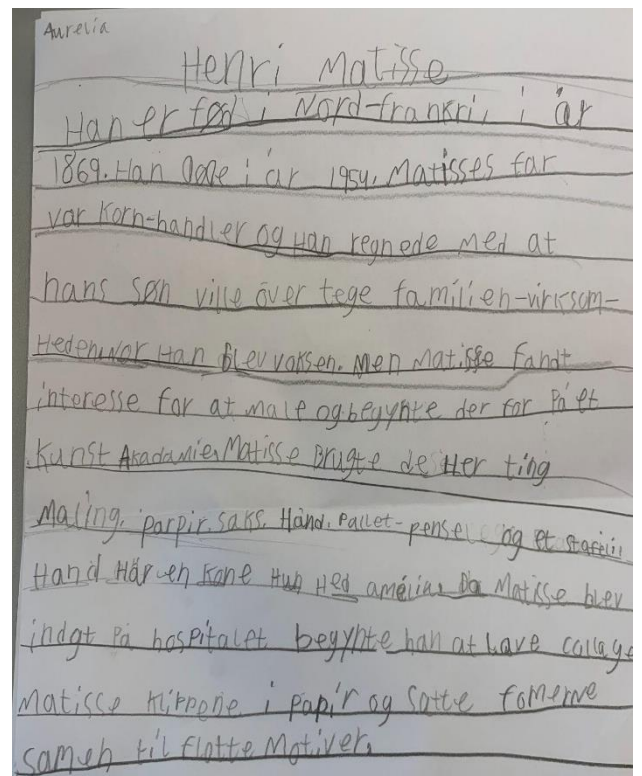 Aurelia
Henri Matisse
Han er fød i Nord-frankri, i år
1869. Han døde i år 1954. Matisses far
var Korn-handler og Han regnede med at
hans søn ville over tege familien-virksom-
Heden. Nor Han blev voksen. Men Matisse fandt
interesse for at male og begynte der for På et
Kunst Akadamie. Matisse Brugte de Her ting
Maling. parpir. saks. Hånd. Pallet-pensel og et stafeli
Han d Har en Kone Hun Hed amélia. Da Matisse blev
indgt På hospitalet begynte han at lave collage
Matisse Klippene i papir og Satte fomerne
samen til flotte Motiver.